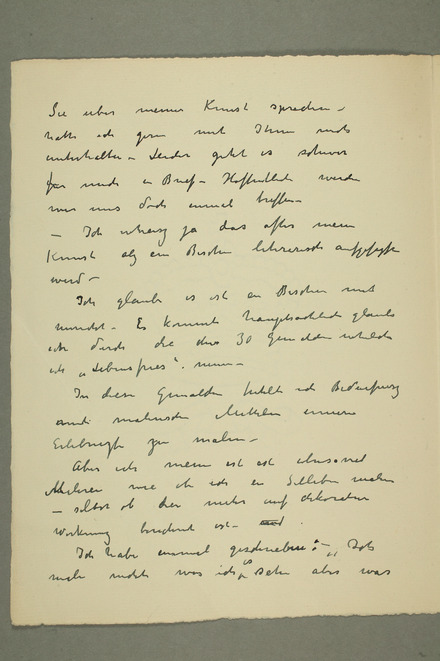 Sie über meine Kunst sprechen –
hätte ich gern mit Ihnen mich
unterhalten – Leider geht es schwer
für mich en Brief – Hoffentlich werden
wir uns doch einmal treffen –
– Ich weiss ja das öfter mein
Kunst als ein Bischen literarisch aufgefasst
werd –
Ich glaube es ist en Bischen mit
unrecht – Es kommt hauptsächlich glaube
ich durch die circa 30 Gemälden welche
ich „Lebensfries". nenne –
In diese Gemälden habe ich
mit malerischen Mitteln innere
Erlebnisse zu malen –
Aber ich meine es ist ebensoviel
Malerei wie ob ich en Stilleben malen
– selbst ob hier mehr auf dekorativ
Workung berechnet ist –
Ich habe einmal geschrieben: – „Ich
male nicht was ich sehe aber was